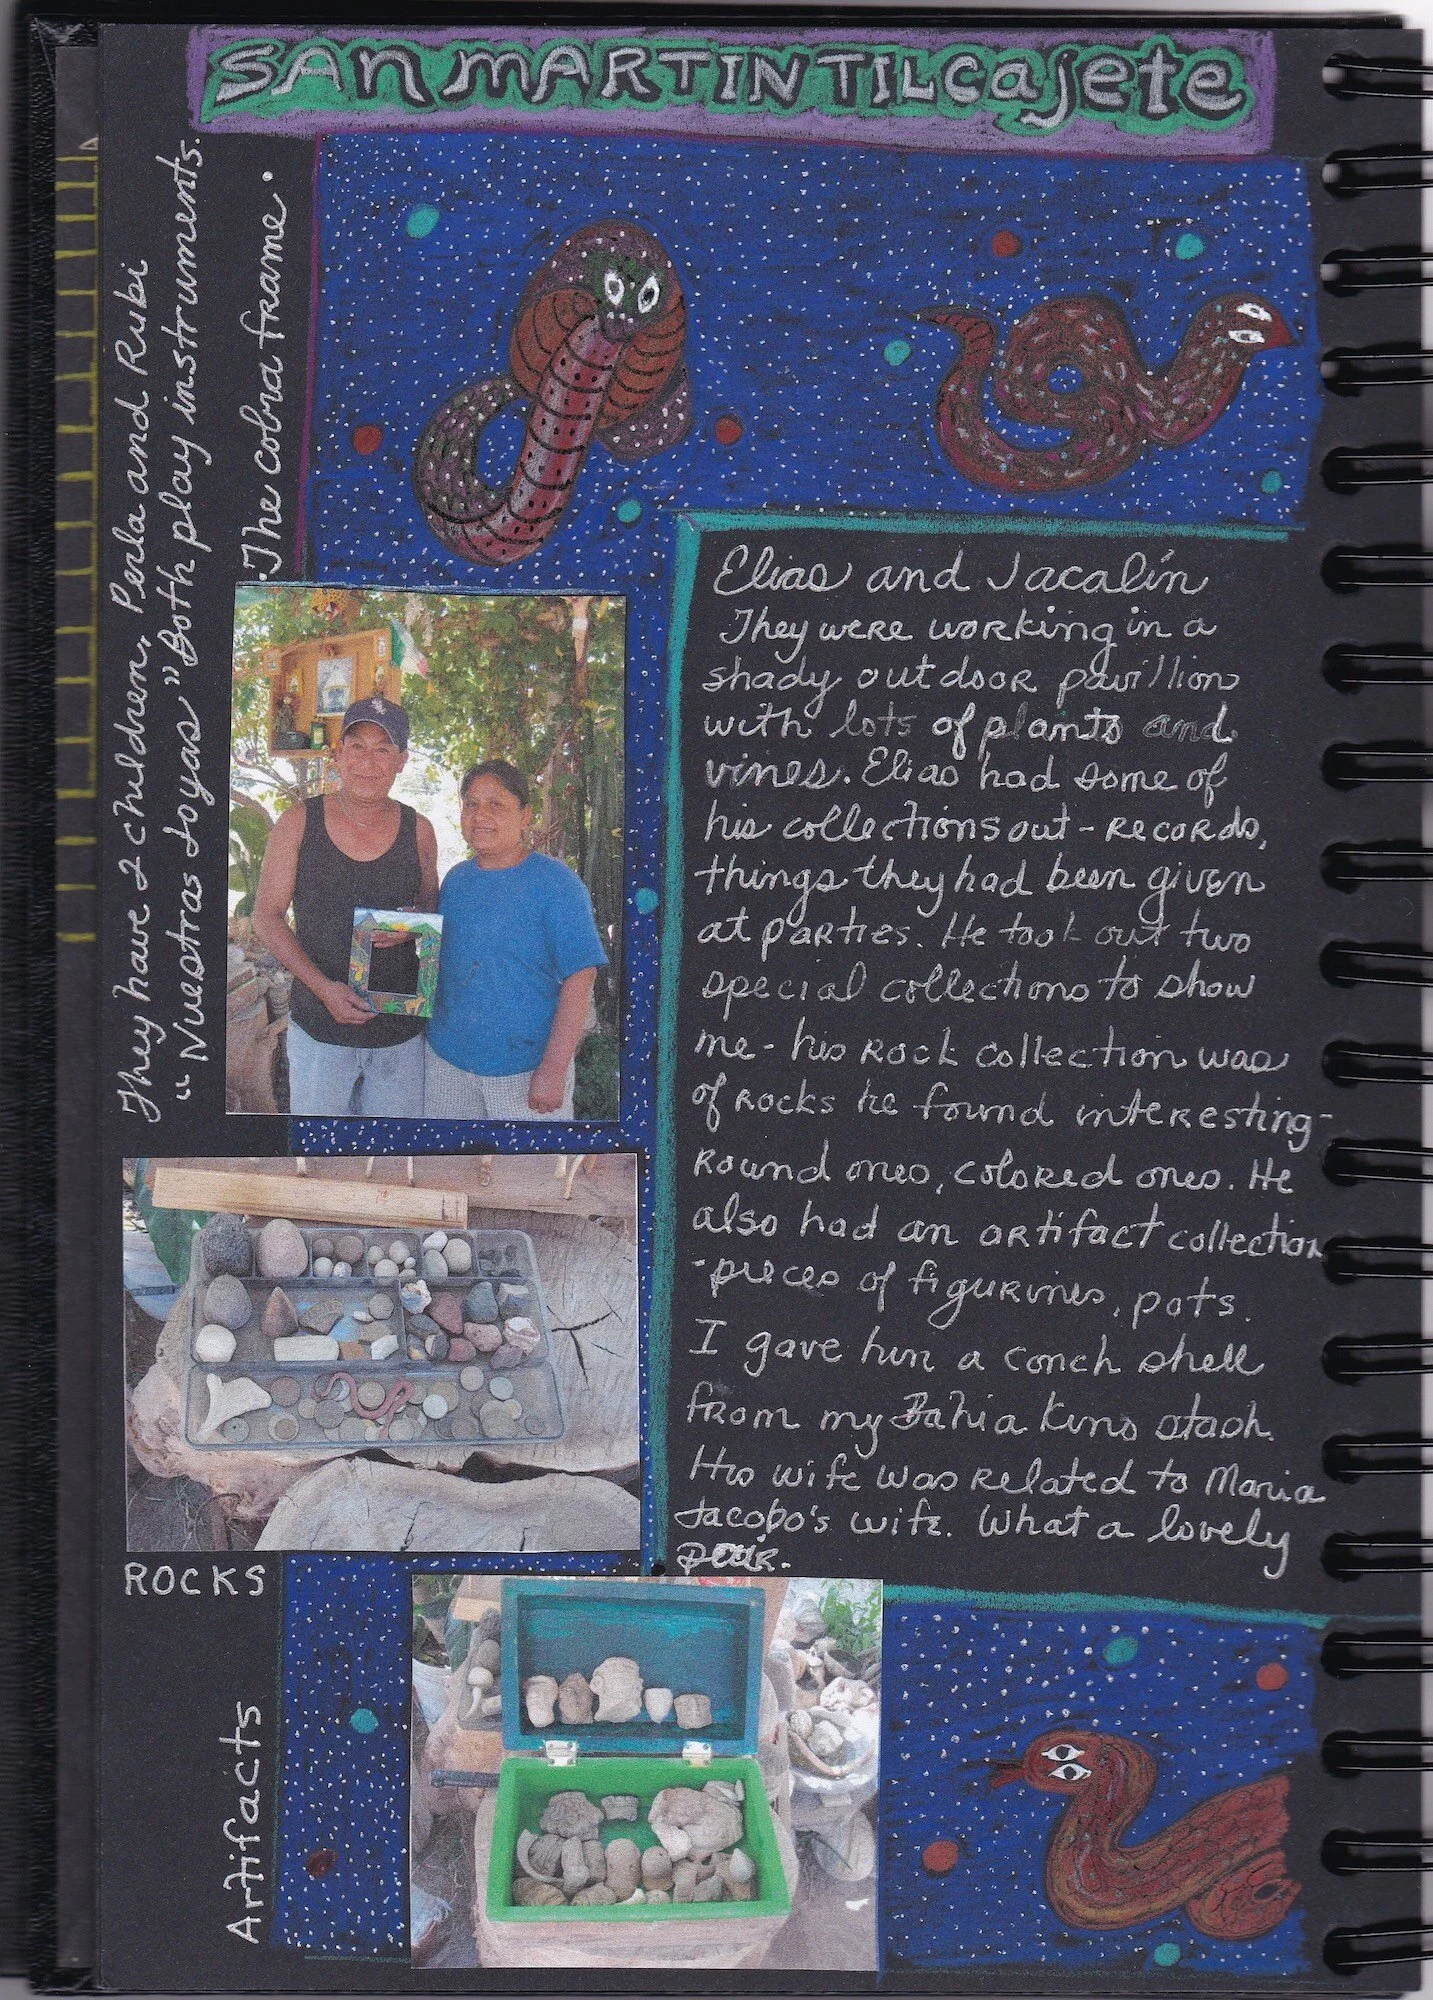 SAN MARTIN TILCAJETE
They have 2 children, Perla and Rubi
"Nuestras Joyas" Both play instruments.
The cobra frame.
Elias and Jacalín
They were working in a
shady outdoor pavillion
with lots of plants and
vines. Elias had some of
his collections out - records,
things they had been given
at parties. He took out two
special collections to show
me - his rock collection was
of rocks he found interesting -
round ones, colored ones. He
also had an artifact collection
- pieces of figurines, pots.
I gave him a conch shell
from my Bahia Kino stash.
His wife was related to Maria
Jacobo's wife. What a lovely
pair.
ROCKS
Artifacts